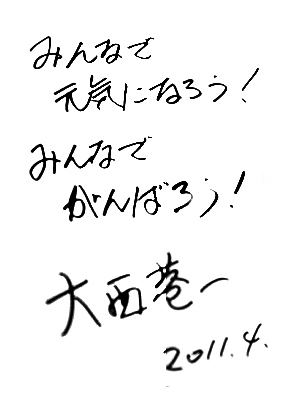 みんなで
元気になろう!
みんなで
がんばろう!
大西巷一
2011.4.